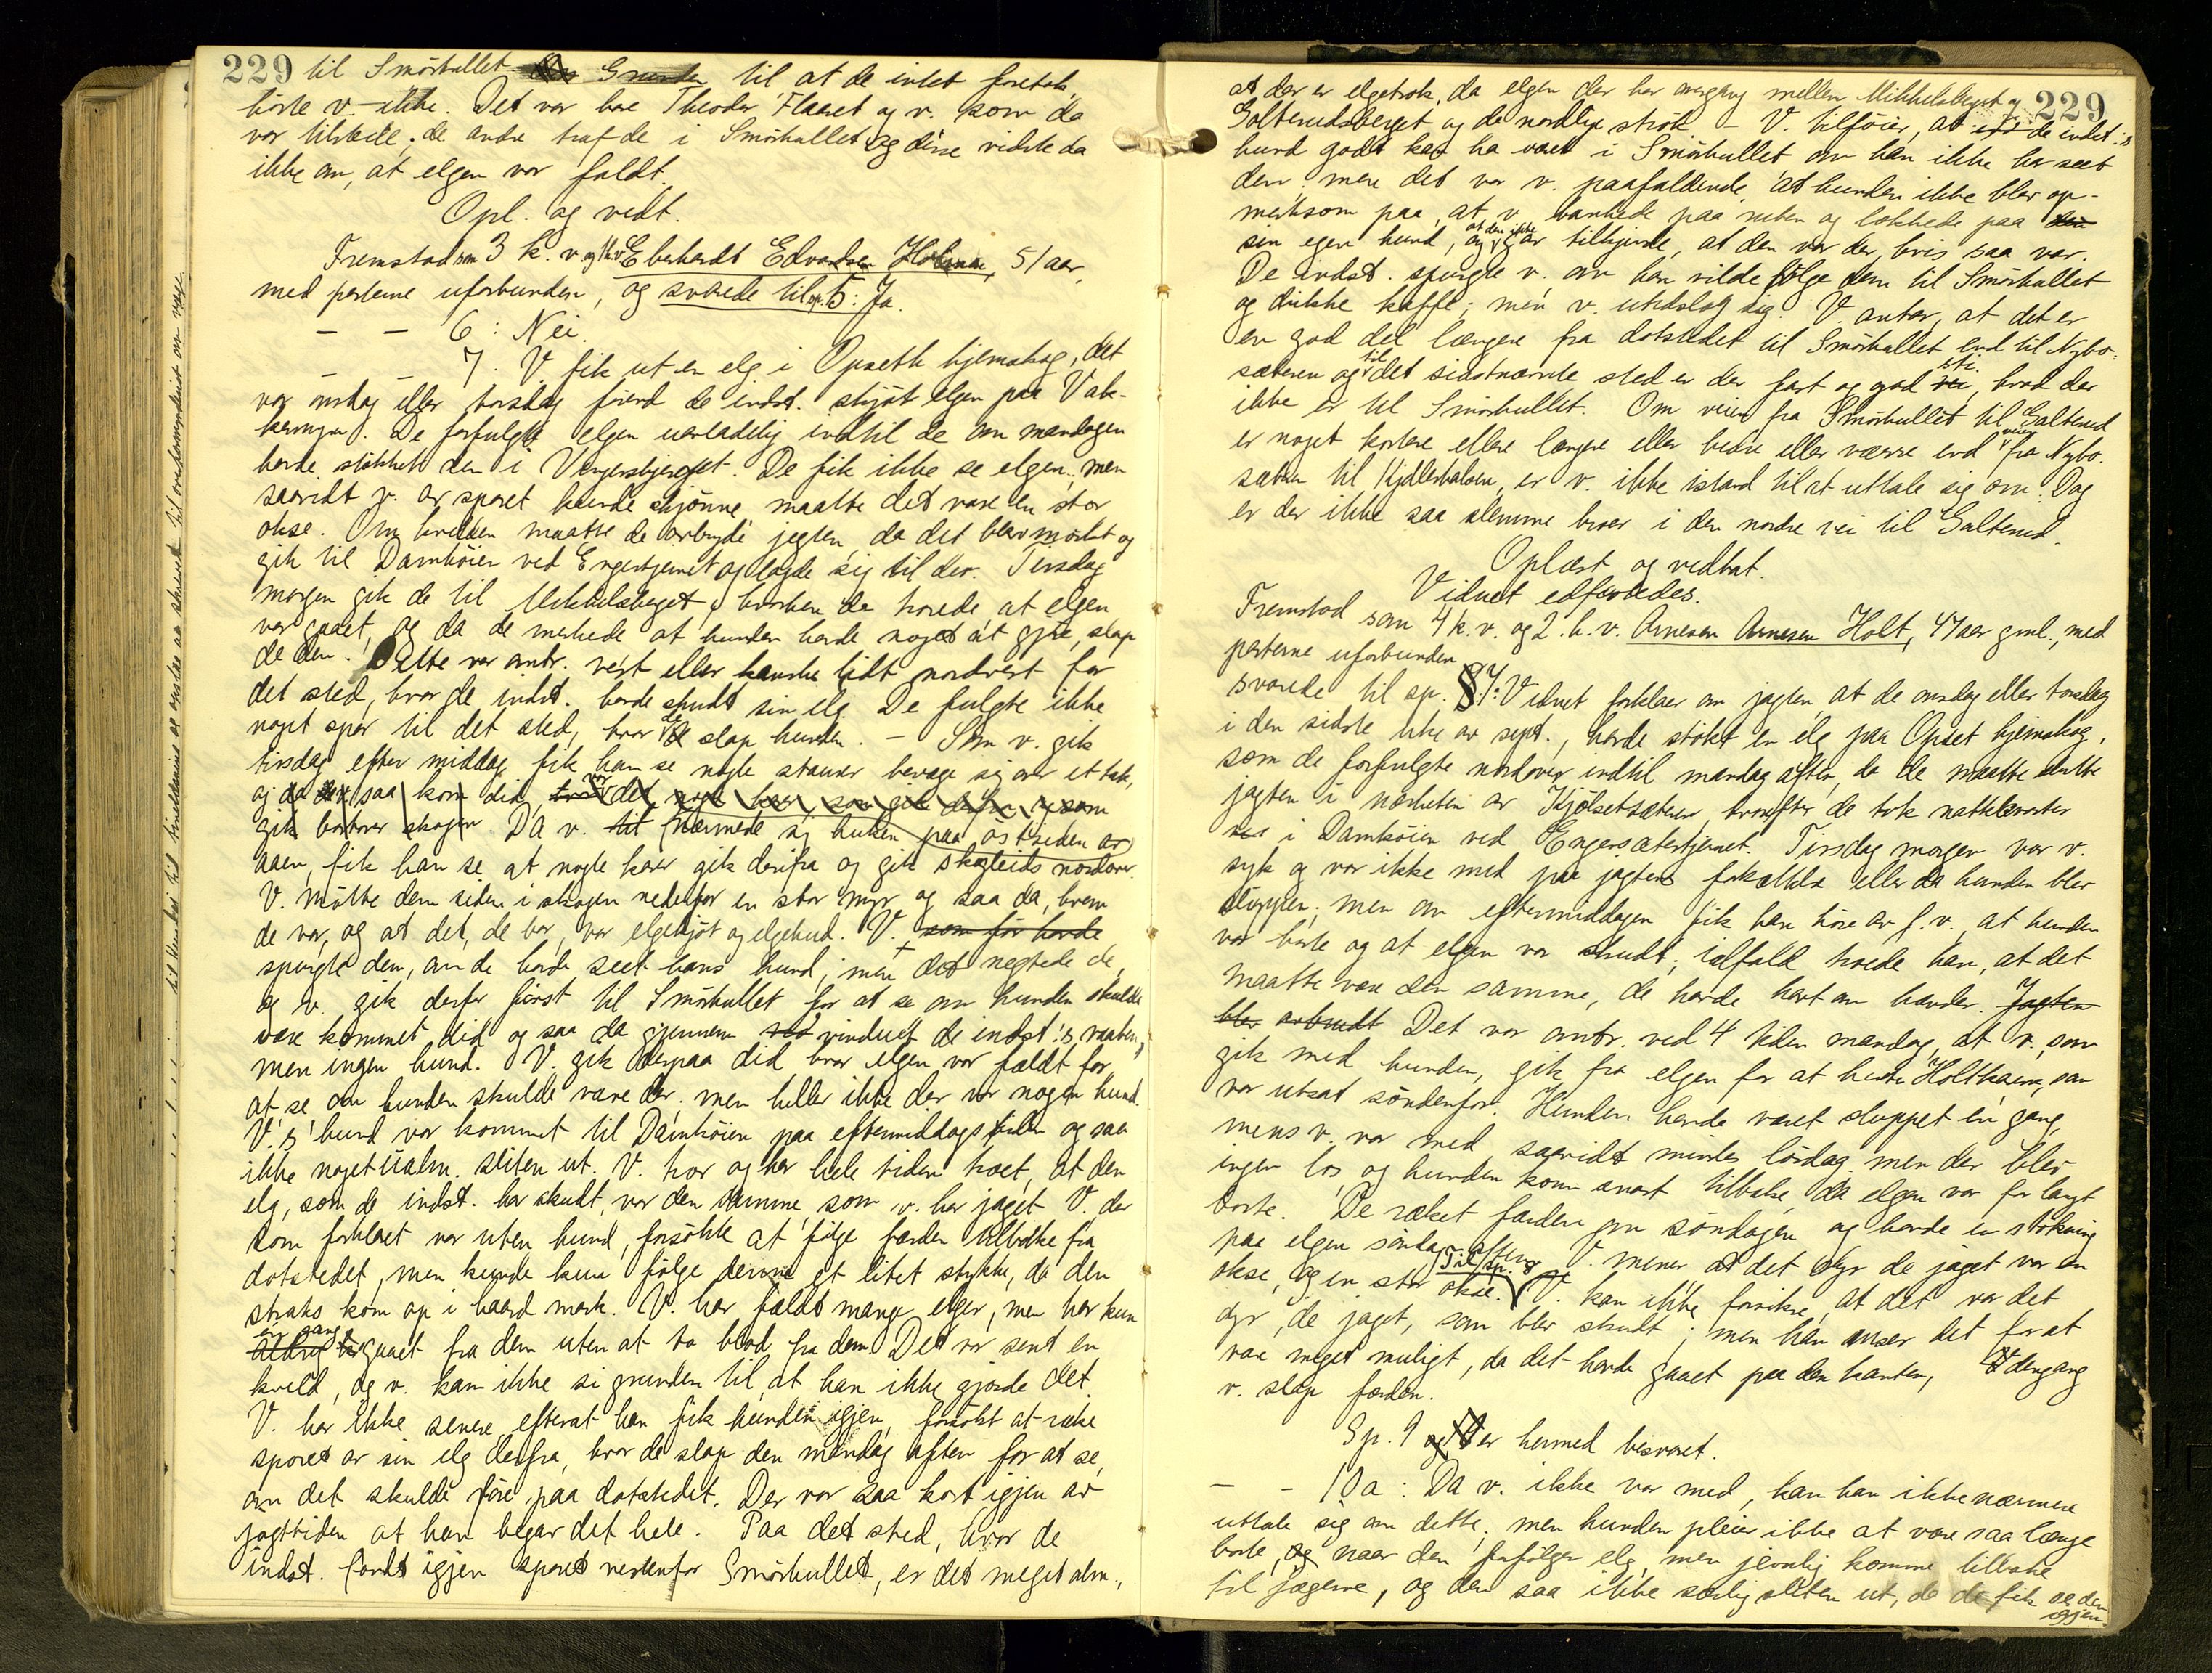 229 til Smörhullet Grunden til at de intet foretok,
hörte v. ikke. Det var bare Theodor Flaaet og v. som da
var tilstede; de andre traf de i Smörhullet og disse vidste da
ikke om, at elgen var faldt.
Opl. og vedt.
Fremstod som 3 k. v. og 1 h.v. Eberhardt Edvardsen 51 aar,
med parterne uforbunden, og svarede til sp. 5: Ja.
— — 6: Nei.
— — 7. V fik ut en elg i Opseth hjemskog, det
var onsdag eller torsdag förend de indst. skjöt elgen paa Vak-
. De forfulgte elgen uavladelig indtil de om mandagen
havde stökket den i . De fik ikke se elgen, men
saavidt v. av sporet kunde skjönne maatte det være en stor
okse. Om kvelden maatte de avbryde jagten, da det blev mörkt og
gik til Damkoien ved Engertjernet og lagde sig til der. Tirsdag
morgen gik de til Mikkelsberget, hvorhen de troede at elgen
var gaaet, og da de merkede at hunden havde noget at gjöre, slap
de den. Dette var omtr. vest eller kanske lidt nordvest for
det sted, hvor de indst. havde skudt sin elg. De fulgte ikke
noget spor til det sted, hvor de slap hunden. — Som v. gik
tirsdag efter middag fik han se nogle stauer bevæge sig over et tak,
og da saa kom did, var det nogle karer, som gik derfra og som
gik bortover skogen Da v. til nærmede sig buken paa östsiden av
aaen, fik han se, at nogle karer gik derifra og gik skogleids nordover.
V. mötte dem siden i skogen nedenfor en stor myr og saa da, hvem
de var, og at det, de bar, var elgekjöt og elgehud. V. som för havde
spurgte dem, om de havde seet hans hund, men det negtede de,
og v. gik derfor först til Smörhullet for at se om hunden skulde
være kommet did og saa da gjennem vinduet de indst.'s vaaben,
men ingen hund. V. gik derpaa did, hvor elgen var fældt for
at se, om hunden skulde være der. men heller ikke der var nogen hund.
V.'s hund var kommet til Damkoien paa eftermiddagstiden og saa
ikke noget ualm. sliten ut. V. tror og har hele tiden troet, at den
elg, som de indst. har skudt, var den samme, som v. har jaget V. der
som forklaret var uten hund, forsökte at fölge færden tilbake fra
dotstedet, men kunde kun fölge denne et litet stykke, da den
straks kom op i haard mark. V. har fældt mange elger, men har kun
én gang aldrig gaaet fra dem uten at ta blod fra dem. Det var sent en
kveld, og v. kan ikke si grunden til, at han ikke gjorde det.
V. har ikke senere, efterat han fik hunden igjen, forsökt at söke
sporet av sin elg derfra, hvor de slap den mandag aften for at se,
om det skulde före paa dotstedet. Der var saa kort igjen av
jagttiden at han begav det hele. Paa det sted, hvor de
indst. fandt igjen sporet vestenfor Smörhullet, er det meget alm.,
at der er elgetrok, da elgen der har overgang mellem Mikkelsberget og 229
Galterudsberget og de nordlige strök — V. tilföier, at de indst.'s
hund godt kan ha været i Smörhullet om han ikke har seet
den. men det var v. paafaldende, at hunden ikke blev op-
merksom paa, at v. bankede paa ruten og lokkede paa den
sin egen hund, og at den ikke gav tilkjende, at den var der, hvis saa var.
De indst. spurgte v. om han vilde fölge dem til Smörhullet
og drikke kaffe; men v. undslog sig. V. antar, at det er
en god del længere fra dotstedet til Smörhullet end til Nybo-
sæteren og til det sidstnævnte sted er der fast og god sti, hvad der
ikke er til Smörhullet. Om veien fra Smörhullet til Galterud
er noget kortere eller længre eller bedre eller værre end veien fra Nybo-
sæteren til Kjölerhalsen, er v. ikke istand til at uttale sig om. Dog
er der ikke saa slemme broer i den nordre vei til Galterud.
Oplæst og vedtat.
Vidnet edfæstedes.
Fremstod som 4 k. v. og 2. h. v. Arnesen Arnesen Holt, 47 aar gml., med
parterne uforbunden
svarede til sp. 7: Vidnet forklarer om jagten, at de onsdag eller torsdag
i den sidste uke av sept., havde stökt en elg paa Opset hjemskog,
som de forfulgte nordover indtil mandag aften, da de maatte slutte
jagten i nærheten av Kjölsetsæteren, hvorefter de tok nattekvarter
i Damkoien ved Engersætertjernet. Tirsdag morgen var v.
syk og var ikke med paa jagtens fortsættelse eller da hunden blev
sluppen; men om eftermiddagen fik han höre av f. v., at hunden
var borte og at elgen var skudt; ialfald troede han, at det
maatte være den samme, de havde havt om hænder. Jagten
blev avbrudt Det var omtr. ved 4 tiden mandag, at v., som
gik med hunden, gik fra elgen for at hente Holtkaren, som
var utsat söndenfor. Hunden havde været sluppet én gang,
mens v. var med saavidt mindes lördag. men der blev
ingen los, og hunden kom snart tilbake, da elgen var for langt
borte. De ræket færden om söndagen og havde en stökning
paa elgen söndag aften. V. mener at det dyr de jaget var en
okse, og en stor okse. Til sp. 8 V. kan ikke forsikre, at det var det
dyr, de jaget, som blev skudt; men han anser det for at
være meget muligt, da det havde gaaet paa den kanten, dengang
v. slap færden.
Sp. 9 er hermed besvaret.
— — 10 a: Da v. ikke var med, kan han ikke nærmere
uttale sig om dette; men hunden pleier ikke at være saa længe
borte, og naar den forfölger elg, men jevnlig komme tilbake
til jægerne, og den saa ikke særlig sliten ut, da de fik se den
igjen